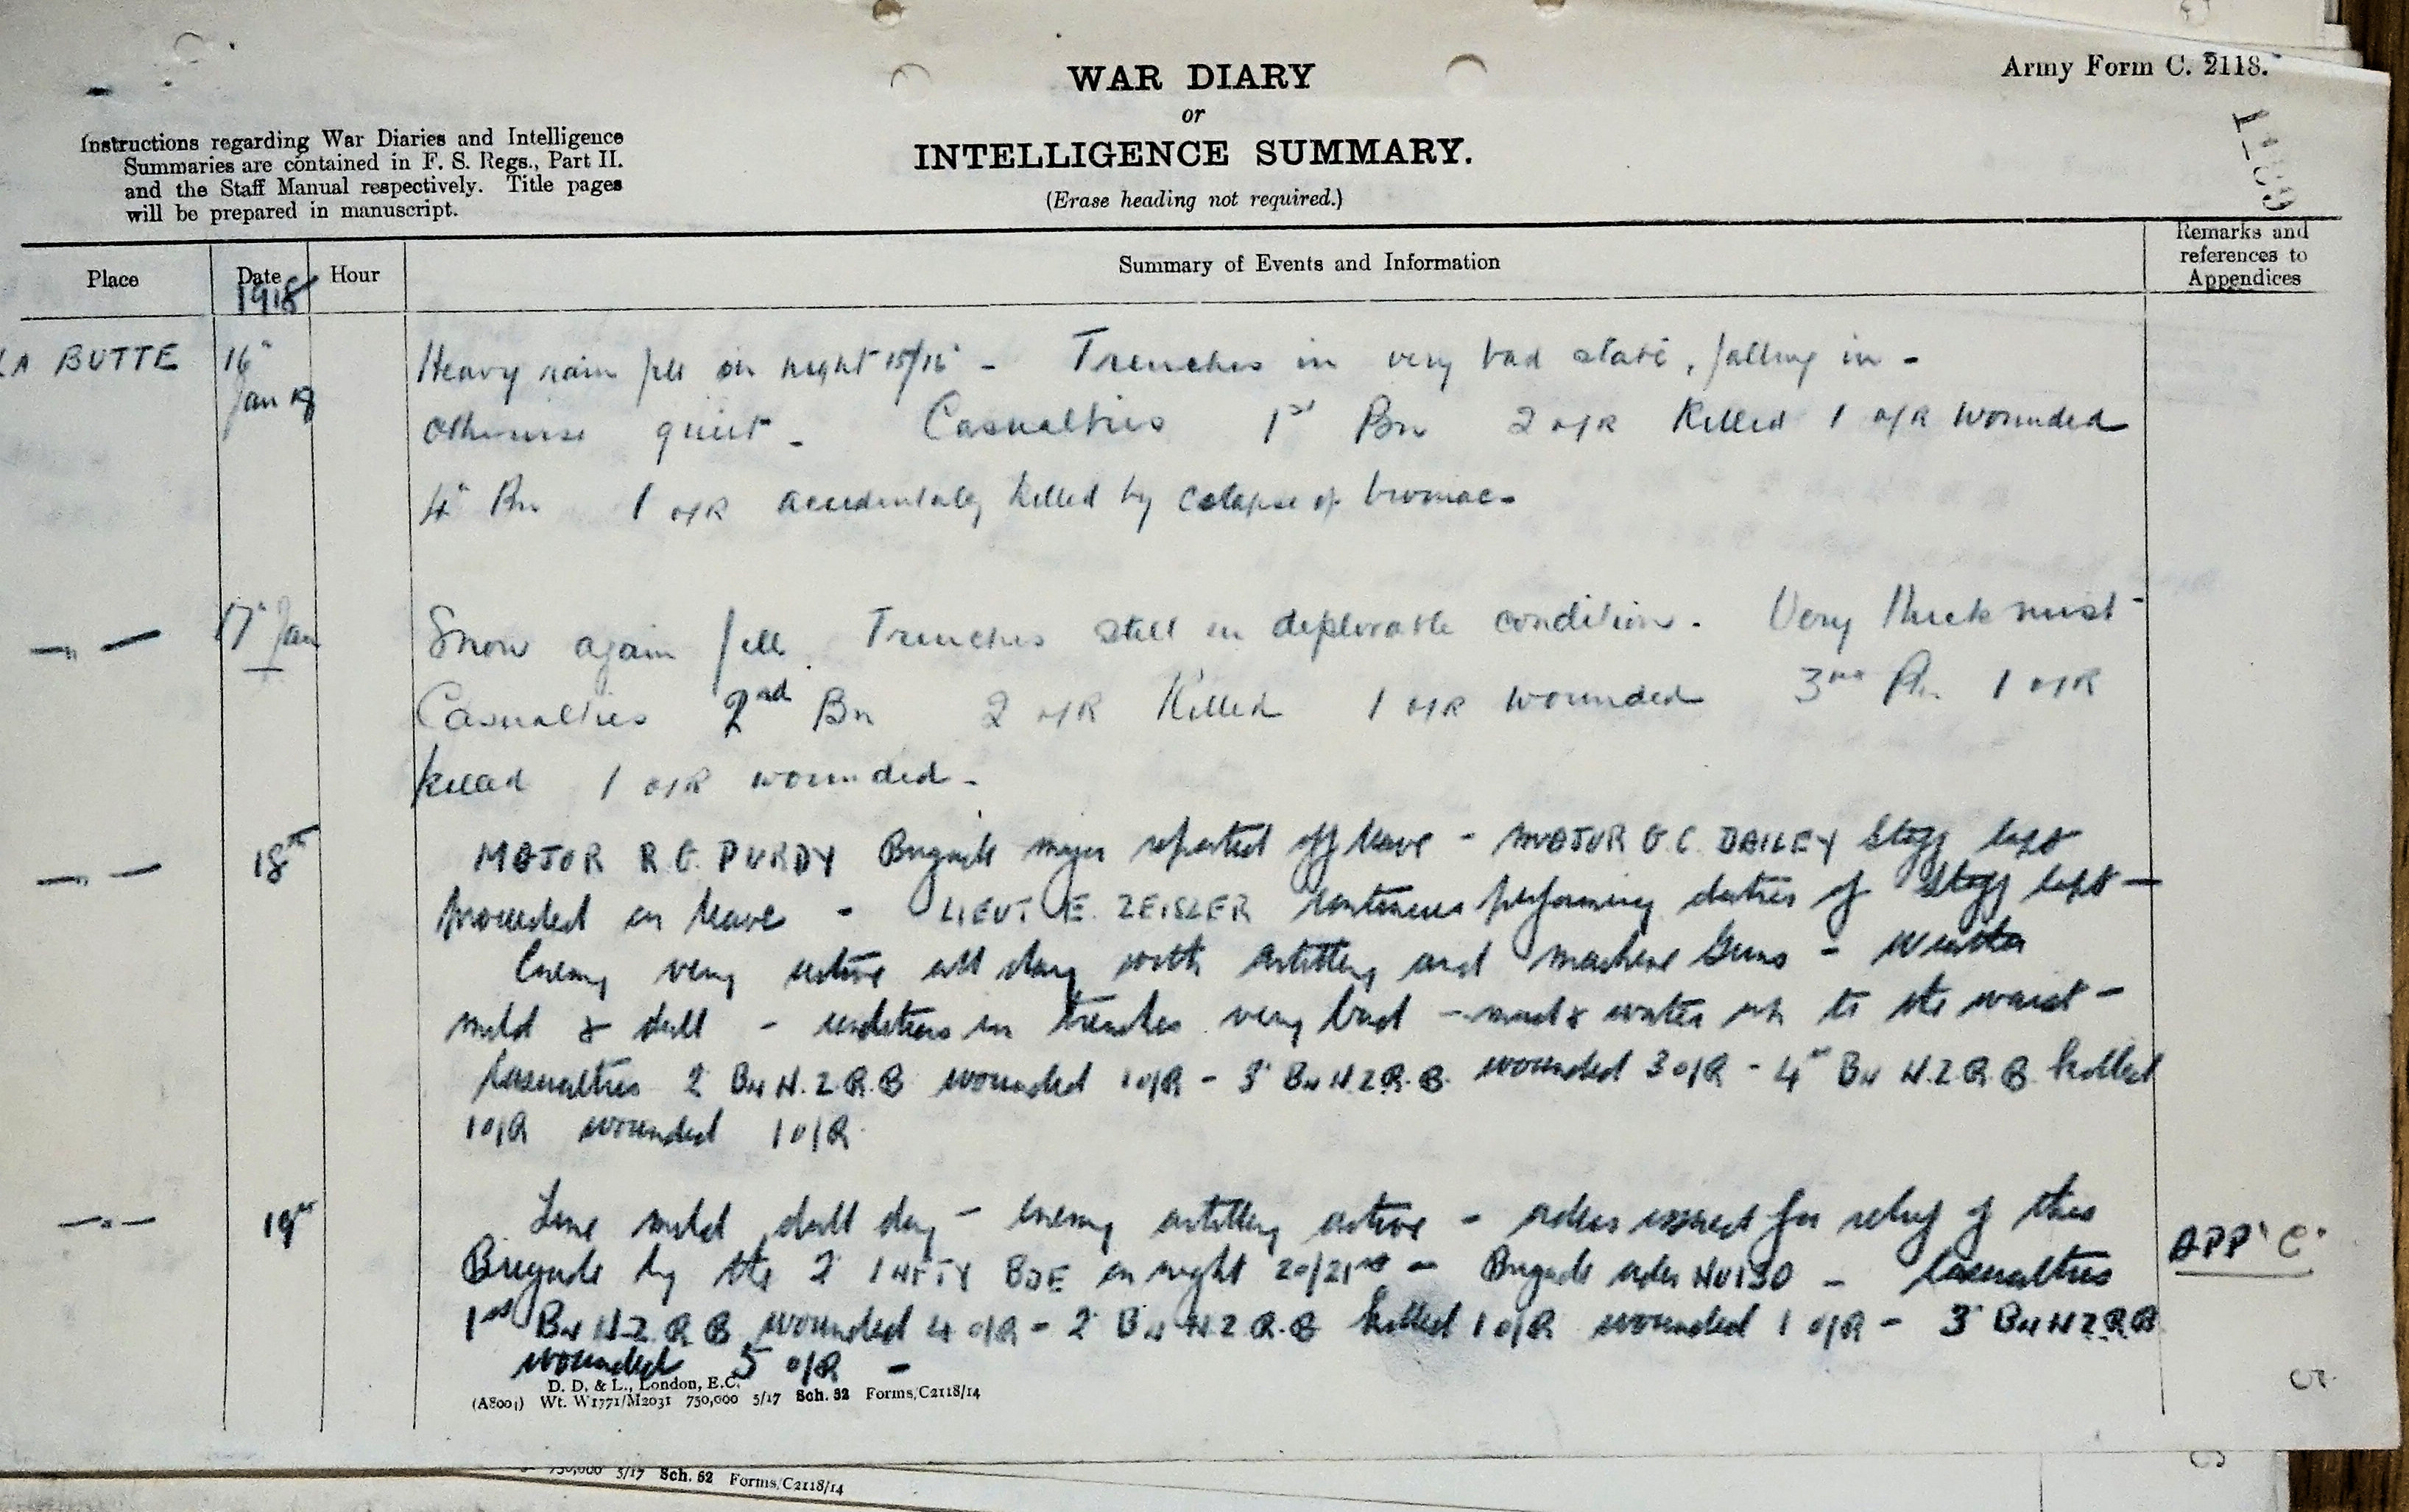 Army Form C. 2118.
WAR DIARY
or
INTELLIGENCE SUMMARY.
(Erase heading not required.)
Instructions regarding War Diaries and Intelligence
Summaries are contained in F. S. Regs., Part II.
and the Staff Manual respectively. Title pages
will be prepared in manuscript.
Place Date Hour Summary of Events and Information Remarks and
references to
Appendices
1918
LA BUTTE 16" Jan 18 Heavy rain fell on night 15/16" - Trenches in very bad state, falling in -
otherwise quiet - Casualties 1st Bn 2 o/R Killed 1 o/R wounded
4" Bn 1 o/R accidentally killed by colapse of bivouac -
—„— 17" Jan Snow again fell. Trenches still in deplorable condition. Very thick mist -
Casualties 2nd Bn 2 o/R Killed 1 o/R wounded 3rd Bn 1 o/R
killed 1 o/R wounded -
—„— 18th MAJOR R.G. PURDY Brigade major reported off leave - MAJOR G.C. DAILEY Staff Capt
proceeded on leave - LIEUT E. ZEISLER continues performing duties of Staff Capt -
Enemy very active all day with artillery and machine Guns - Weather
mild & dull - conditions in trenches very bad - mud & water up to the waist -
Casualties 2" Bn N.Z.R.B wounded 1 o/R - 3" Bn N.Z.R.B. wounded 3 o/R - 4th Bn N.Z.R.B. killed
1 o/R wounded 1 o/R
—„— 19th Fine mild dull day - Enemy artillery active - orders issued for relief of this
Brigade by the 2" INFTY BDE on night 20/21st - Brigade order No 130 - Casualties APP "C"
1st Bn N.Z.R.B wounded 4 o/R - 2" Bn N.Z.R.B killed 1 o/R wounded 1 o/R - 3" Bn N.Z.R.B
wounded 5 o/R -
D. D. & L., London, E.C.
(A8001) Wt. W1771/M2031 750,000 5/17 Sch. 52 Forms/C2118/14
750,000 5/17 Sch. 52 Forms/C2118/14